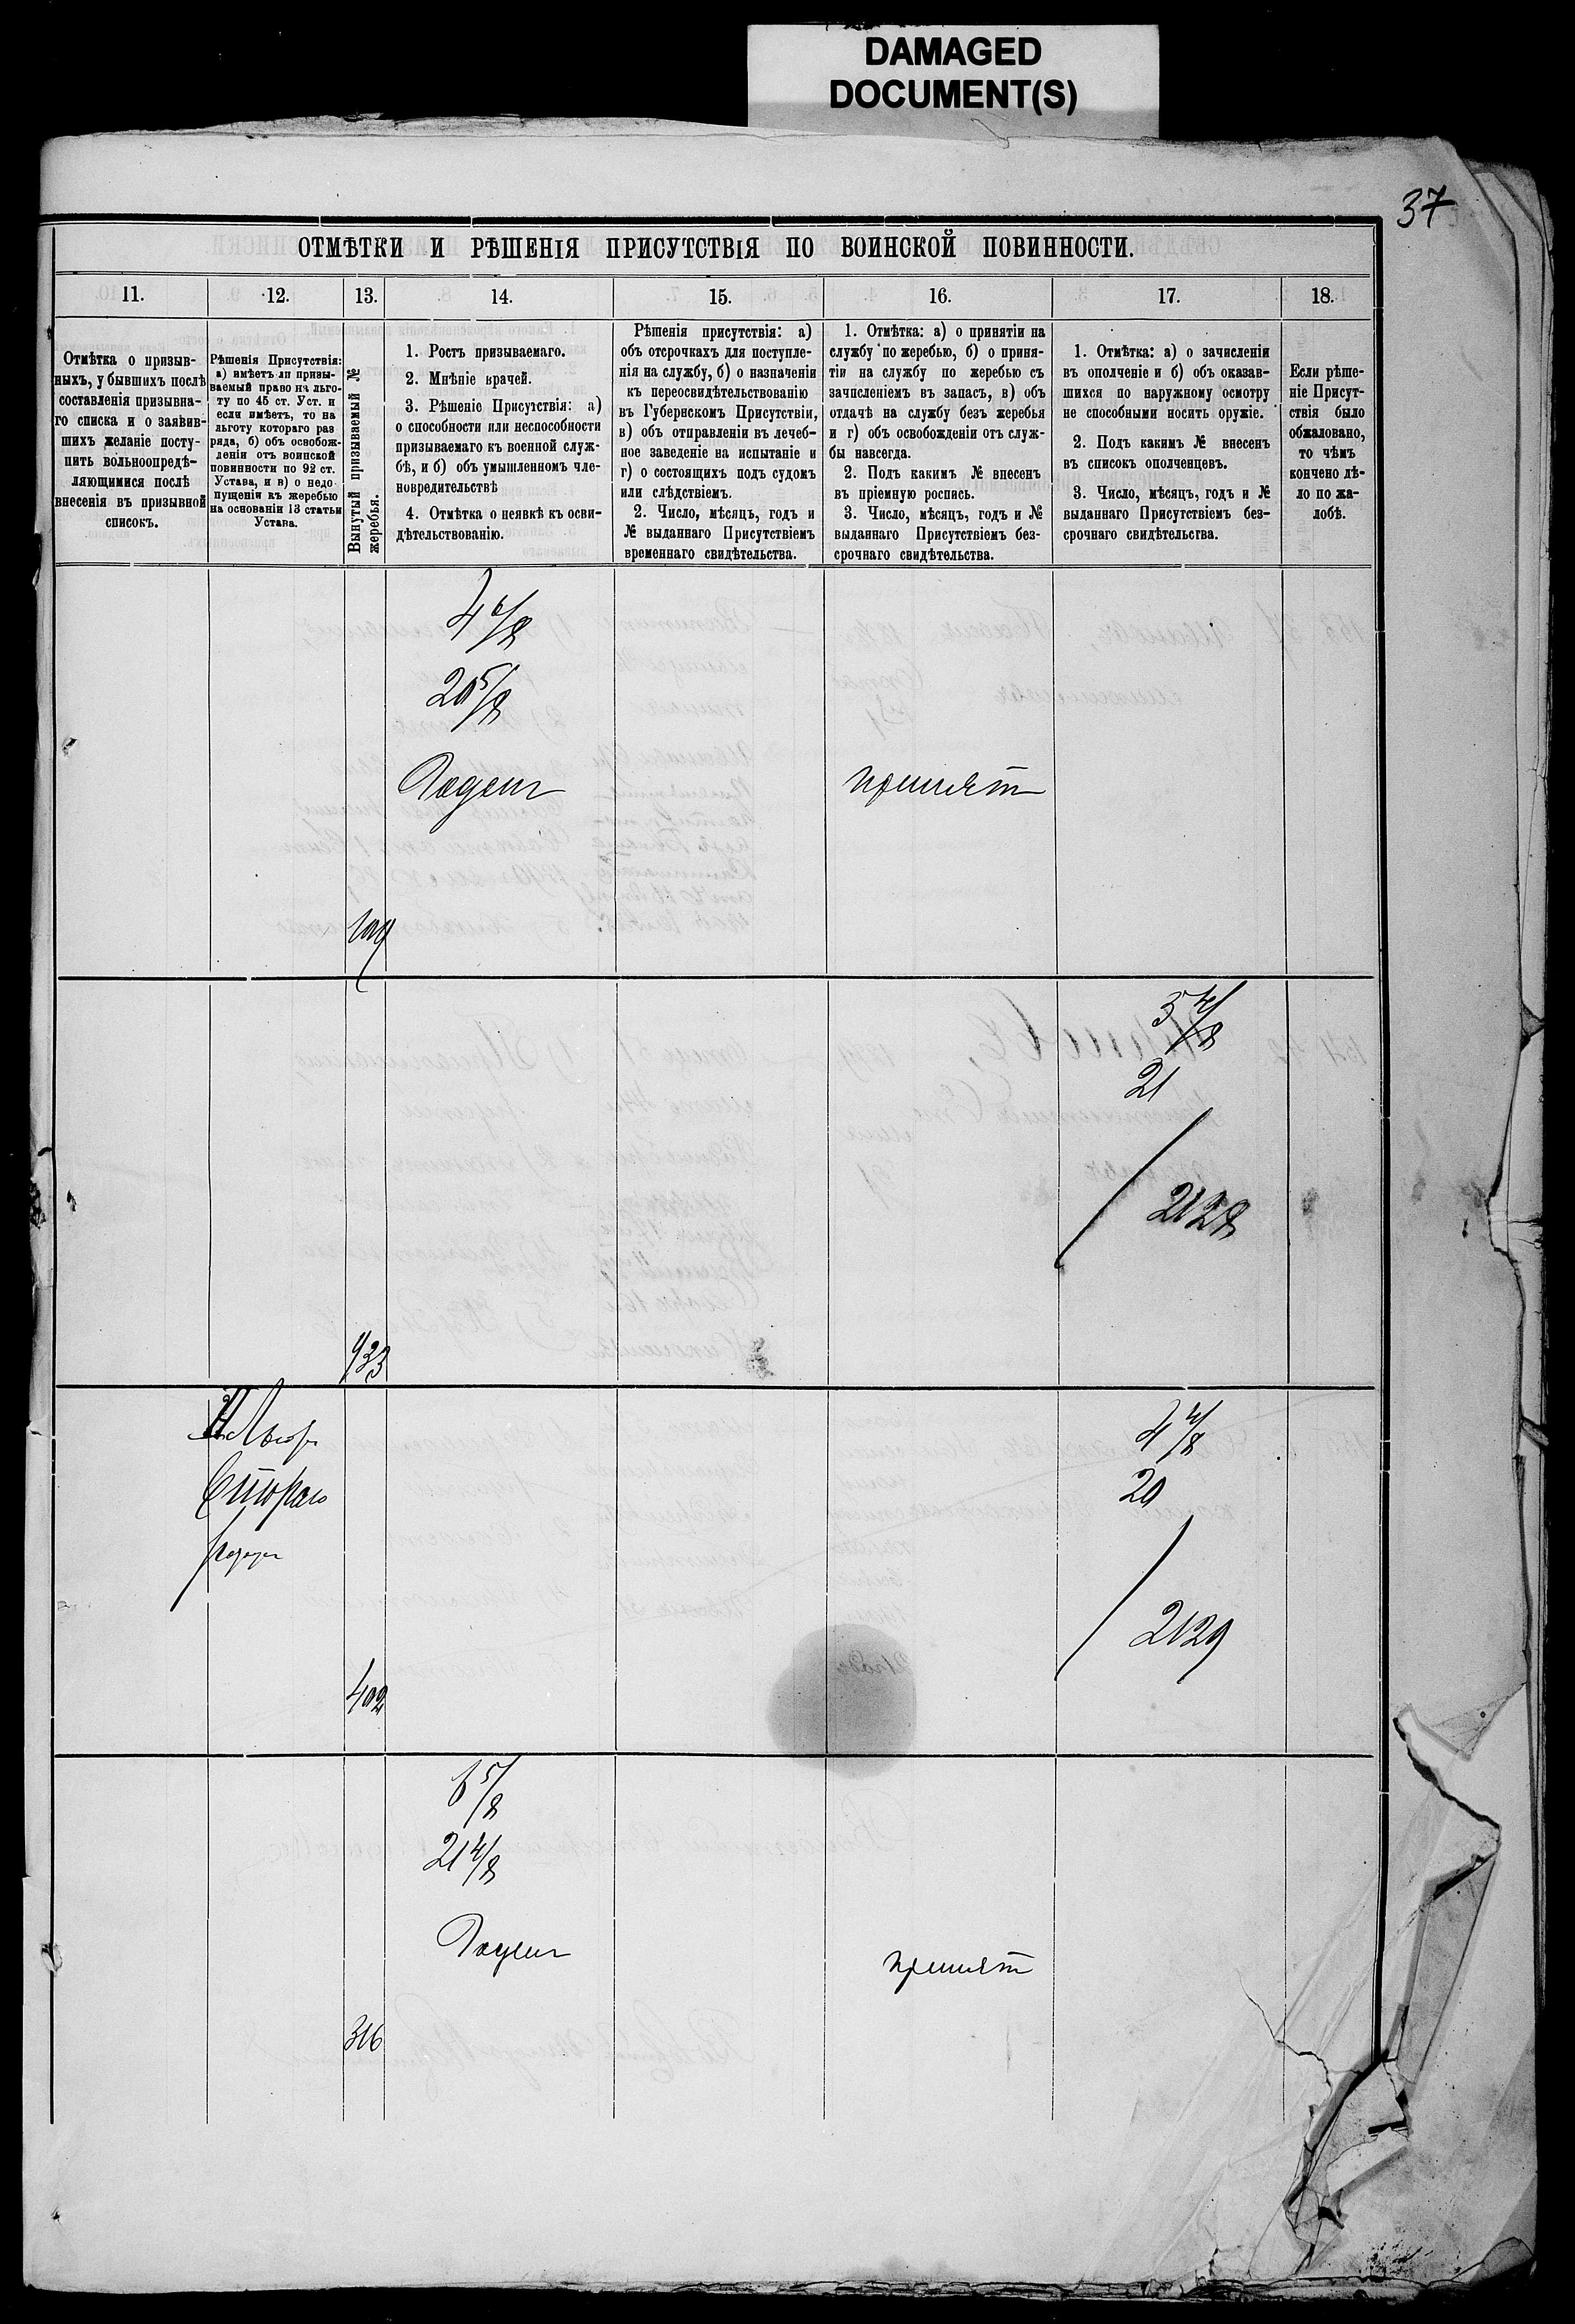 DAMAGED
DOCUMENT(S)
37
ОТМѢТКИ И РѢШЕНІЯ ПРИСУТСТВІЯ ПО ВОИНСКОЙ ПОВИННОСТИ.
11.
12.
13.
14.
15.
16.
17.
18.
Отмѣтка о призыв-
ныхъ, у бывшихъ послѣ
составленія призывна-
го списка и о заявив-
шихъ желаніе посту-
пить вольноопредѣ-
ляющимися послѣ
внесенія въ призывной
списокъ.
Рѣшенія Присутствія:
а) имѣетъ ли призы-
ваемый право на льго-
ту по 45 ст. Уст. и
если имѣетъ, то на
льготу котораго раз
ряда, б) объ освобож-
деніи отъ воинской
повинности по 92 ст.
Устава, и в) о недо
пущеніи къ жеребью
на основаніи 13 статьи
Устава.
Вынутый призываемый №
жеребья.
1. Ростъ призываемаго.
2. Мнѣніе врачей.
3. Рѣшеніе Присутствія: а)
о способности или неспособности
призываемаго къ военной служ-
бѣ, и б) объ умышленномъ чле-
новредительствѣ
4. Отмѣтка о неявкѣ къ осви-
дѣтельствованію.
Рѣшенія присутствія: а)
объ отсрочкахъ для поступле-
нія на службу, б) о назначеніи
къ переосвидѣтельствованію
въ Губернскомъ Присутствіи,
в) объ отправленіи въ лечеб-
ное заведеніе на испытаніе и
г) о состоящихъ подъ судомъ
или слѣдствіемъ.
2. Число, мѣсяцъ, годъ и
№ выданнаго Присутствіемъ
временнаго свидѣтельства.
1. Отмѣтка: а) о принятіи на
службу по жеребью, б) о приня-
тіи на службу по жеребью съ
зачисленіемъ въ запасъ, в) объ
отдачѣ на службу безъ жеребья
и г) объ освобожденіи отъ служ-
бы навсегда.
2. Подъ какимъ № внесенъ
въ пріемную роспись.
3. Число, мѣсяцъ, годъ и №
выданнаго Присутствіемъ без-
срочнаго свидѣтельства.
1. Отмѣтка: а) о зачисленіи
въ ополченіе и б) объ оказав-
шихся по наружному осмотру
не способными носить оружіе.
2. Подъ какимъ № внесенъ
въ списокъ ополченцевъ.
3. Число, мѣсяцъ, годъ и №
выданнаго Присутствіемъ без-
срочнаго свидѣтельства.
Если рѣше-
ніе Присут-
ствія было
обжаловано,
то чѣмъ
кончено дѣ-
ло по жа-
лобѣ.
4 6/8
20 5/8
Годенъ
принят
109
5 4/8
21
2128
933
Втораго
4 4/8
20
2129
402
6 5/8
21 4/8
Годен
принят
316